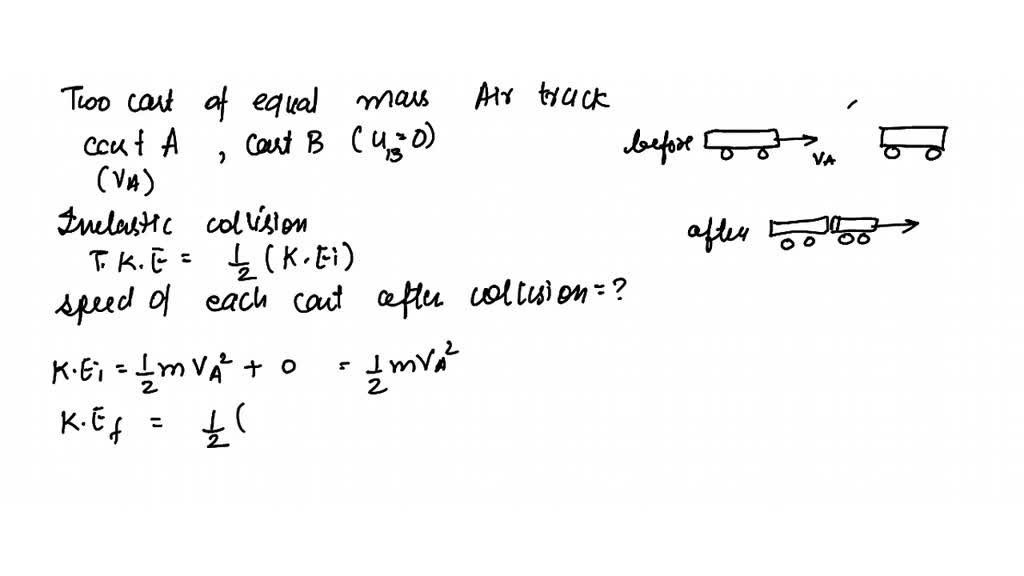 Two cart of equal mass Air track
cart A , cart B (u_B=0)
(VA)
before VA
Inelastic collision
after
T.K.E = 1/2 (K.Ei)
speed of each cart after collision=?
K.Ei = 1/2 m VA² + 0 = 1/2 m VA²
K.Ef = 1/2 (